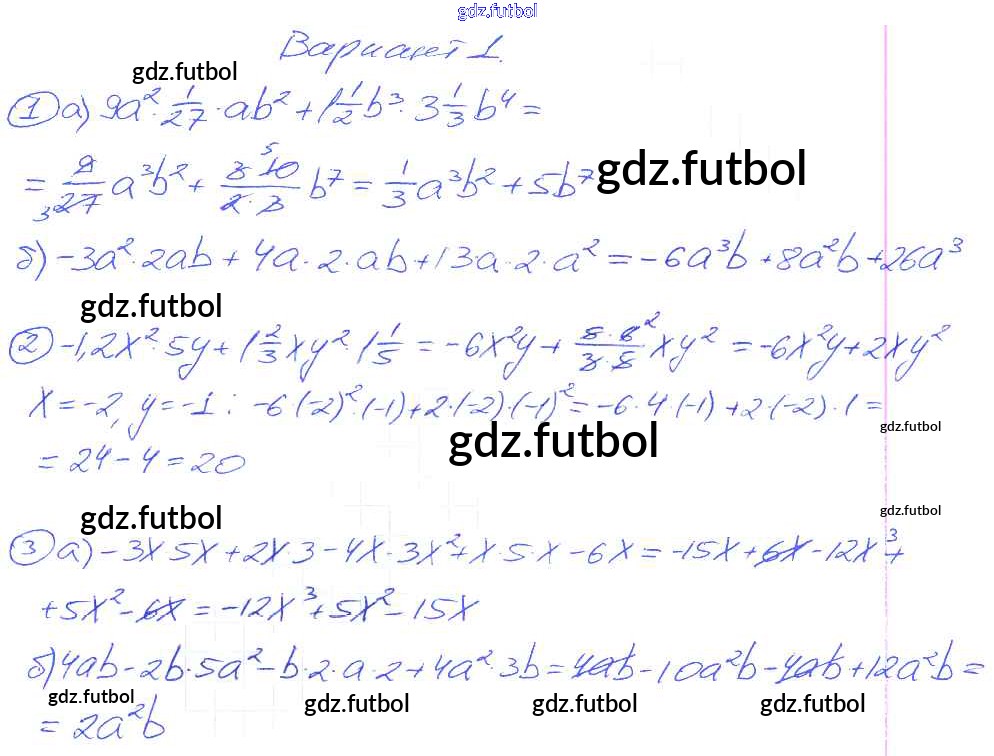 gdz.futbol
Вариант 1.
gdz.futbol
① а) 9a² · 1/27 · ab² + 1 1/2 b³ · 3 1/3 b⁴ =
= 9/27 a³b² + 3·10/2·3 b⁷ = 1/3 a³b² + 5b⁷
gdz.futbol
б) -3a² · 2ab + 4a · 2 · ab + 13 · a · 2 · a² = -6a³b + 8a²b + 26a³
gdz.futbol
② -1,2x² · 5y + 1 2/3 xy² · 1 1/5 = -6x²y + 5·6/3·5 xy² = -6x²y + 2xy²
x = -2, y = -1 : -6 · (-2)² · (-1) + 2 · (-2) · (-1)² = -6 · 4 · (-1) + 2 · (-2) · 1 =
gdz.futbol
gdz.futbol
= 24 - 4 = 20
gdz.futbol
gdz.futbol
③ а) -3x 5x + 2x · 3 - 4x · 3x² + x · 5 · x - 6x = -15x + 6x - 12x³ +
+ 5x² - 6x = -12x³ + 5x² - 15x
б) 4ab - 2b · 5a² - b · 2 · a · 2 + 4a² · 3b = 4ab - 10a²b - 4ab + 12a²b =
gdz.futbol
gdz.futbol
gdz.futbol
gdz.futbol
= 2a²b